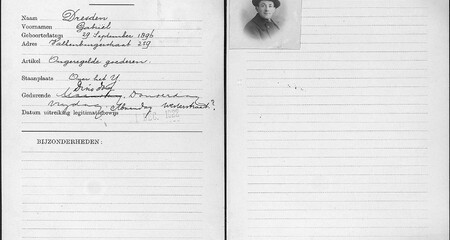 Naam Dresden
Voornamen Gabriël
Geboortedatum 29 September 1896
Adres Valkenburgerstraat 259
Artikel Ongeregelde goederen.
Staanplaats Over het Y
Dinsdag
Gedurende Maandag. Donderdag
Vrydag, Maandag Westerstraat?
Datum uitreiking legitimatiebewijs
DEC.
BIJZONDERHEDEN: